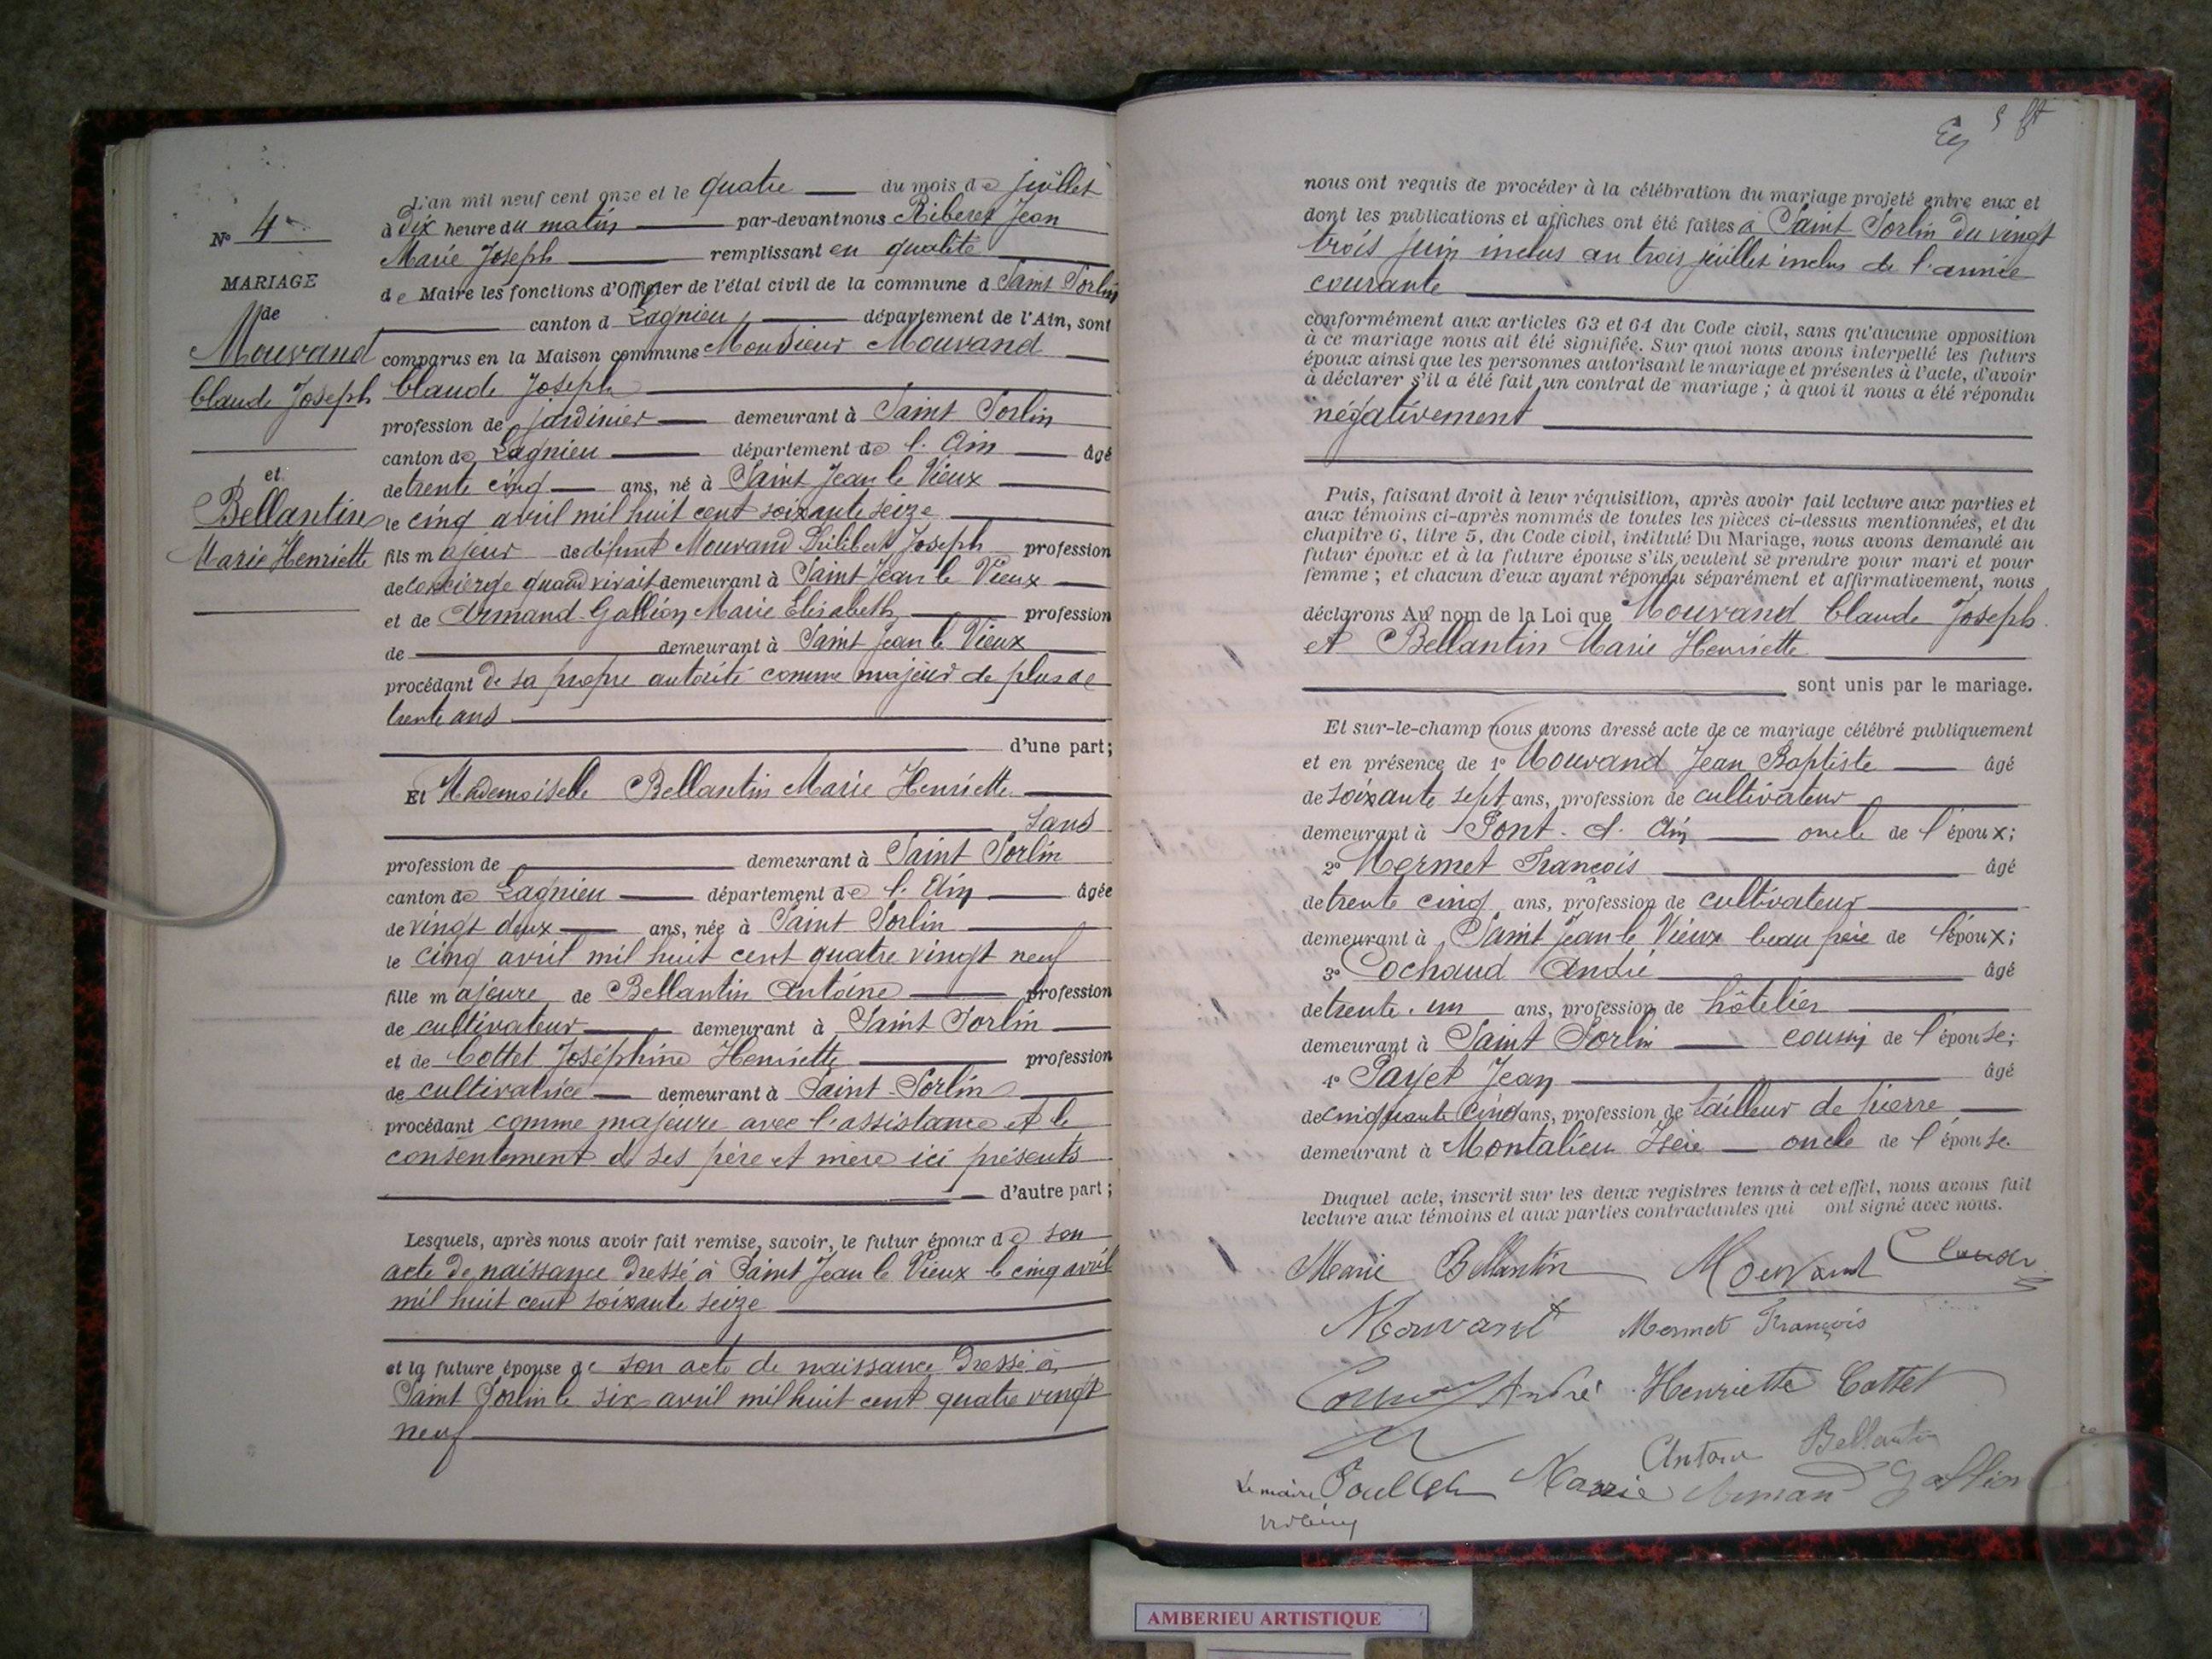 N° 4
MARIAGE
de
Mouvand
Claude Joseph
et
Bellantin
Marie Henriette
L'an mil neuf cent onze et le quatre du mois de juillet
à dix heure du matin par-devant nous Riberet Jean
Marie Joseph remplissant en qualité
de Maire les fonctions d'Officier de l'état civil de la commune d Saint Sorlin
canton d Lagnieu, département de l'Ain, sont
comparus en la Maison commune Monsieur Mouvand
Claude Joseph
profession de jardinier demeurant à Saint Sorlin
canton de Lagnieu département de l'Ain âgé
de trente cinq ans, né à Saint Jean le Vieux
le cinq avril mil huit cent soixante seize
fils majeur de défunt Mouvand Philibert Joseph profession
de concierge quand vivait demeurant à Saint Jean le Vieux
et de Armand-Gallion Marie Elisabeth profession
de demeurant à Saint Jean le Vieux
procédant de sa propre autorité comme majeur de plus de
trente ans
d'une part;
Et Mademoiselle Bellantin Marie Henriette
sans
profession de demeurant à Saint Sorlin
canton de Lagnieu département de l'Ain âgée
de vingt deux ans, née à Saint Sorlin
le cinq avril mil huit cent quatre vingt neuf
fille majeure de Bellantin Antoine profession
de cultivateur demeurant à Saint Sorlin
et de Cottet Joséphine Henriette profession
de cultivatrice demeurant à Saint-Sorlin
procédant comme majeure avec l'assistance et le
consentement de ses père et mère ici présents
d'autre part;
Lesquels, après nous avoir fait remise, savoir, le futur époux de son
acte de naissance dressé à Saint Jean le Vieux le cinq avril
mil huit cent soixante seize
et la future épouse de son acte de naissance dressé à
Saint Sorlin le six avril mil huit cent quatre vingt
neuf
nous ont requis de procéder à la célébration du mariage projeté entre eux et
dont les publications et affiches ont été faites à Saint Sorlin du vingt
trois juin inclus au trois juillet inclus de l'année
courante
conformément aux articles 63 et 64 du Code civil, sans qu'aucune opposition
à ce mariage nous ait été signifiée. Sur quoi nous avons interpellé les futurs
époux ainsi que les personnes autorisant le mariage et présentes à l'acte, d'avoir
à déclarer s'il a été fait un contrat de mariage; à quoi il nous a été répondu
négativement
Puis, faisant droit à leur réquisition, après avoir fait lecture aux parties et
aux témoins ci-après nommés de toutes les pièces ci-dessus mentionnées, et du
chapitre 6, titre 5, du Code civil, intitulé Du Mariage, nous avons demandé au
futur époux et à la future épouse s'ils veulent se prendre pour mari et pour
femme; et chacun d'eux ayant répondu séparément et affirmativement, nous
déclarons Au nom de la Loi que Mouvand Claude Joseph
et Bellantin Marie Henriette
sont unis par le mariage.
Et sur-le-champ nous avons dressé acte de ce mariage célébré publiquement
et en présence de 1° Mouvand Jean Baptiste âgé
de soixante sept ans, profession de cultivateur
demeurant à Pont-d'Ain oncle de l'époux;
2° Mermet François âgé
de trente cinq ans, profession de cultivateur
demeurant à Saint Jean le Vieux beau frère de l'époux;
3° Cochaud André âgé
de trente-un ans, profession de hôtelier
demeurant à Saint Sorlin cousin de l'épouse;
4° Payet Jean âgé
de cinquante cinq ans, profession de tailleur de pierre
demeurant à Montalieu Isère oncle de l'épouse
Duquel acte, inscrit sur les deux registres tenus à cet effet, nous avons fait
lecture aux témoins et aux parties contractantes qui ont signé avec nous.
Marie Bellantin Mouvand Claude
Mouvand Mermet François
André Henriette Cottet
Antoine Bellantin
Le maire Marie Armand Gallion
AMBERIEU ARTISTIQUE